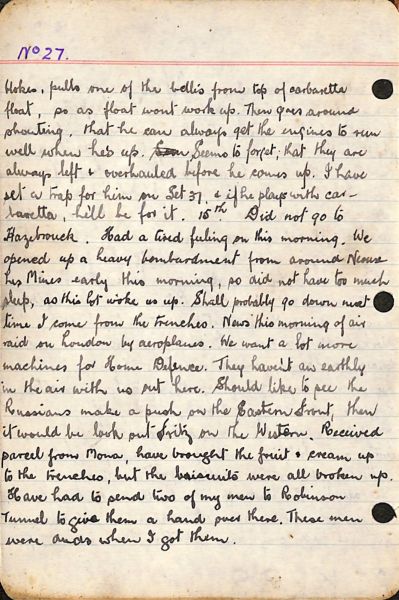 No 27.
blokes, pulls one of the bellis from top of carbaretta
float, so as float wont work up. Then goes around
shouting, that he can always get the engines to run
well when hes up. Seems to forget, that they are
always left & overhauled before he comes up. I have
set a trap for him on Set 37, & if he plays with car-
baretta, he'll be for it. 15th Did not go to
Hazebrouck. Had a tired feeling on this morning. We
opened up a heavy bombardment from around Neouse
les Mines early this morning, so did not have too much
sleep, as this lot woke us up. Shall probably go down next
time I come from the trenches. News this morning of air
raid on London by aeroplanes. We want a lot more
machines for Home Defence. They havent an earthly
in the air with us out here. Should like to see the
Russians make a push on the Eastern Front, then
it would be look out Fritz on the Western. Received
parcel from Mona, have brought the fruit & cream up
to the trenches, but the biscuits were all broken up.
Have had to send two of my men to Robinson
Tunnel to give them a hand over there. These men
were duds when I got them.